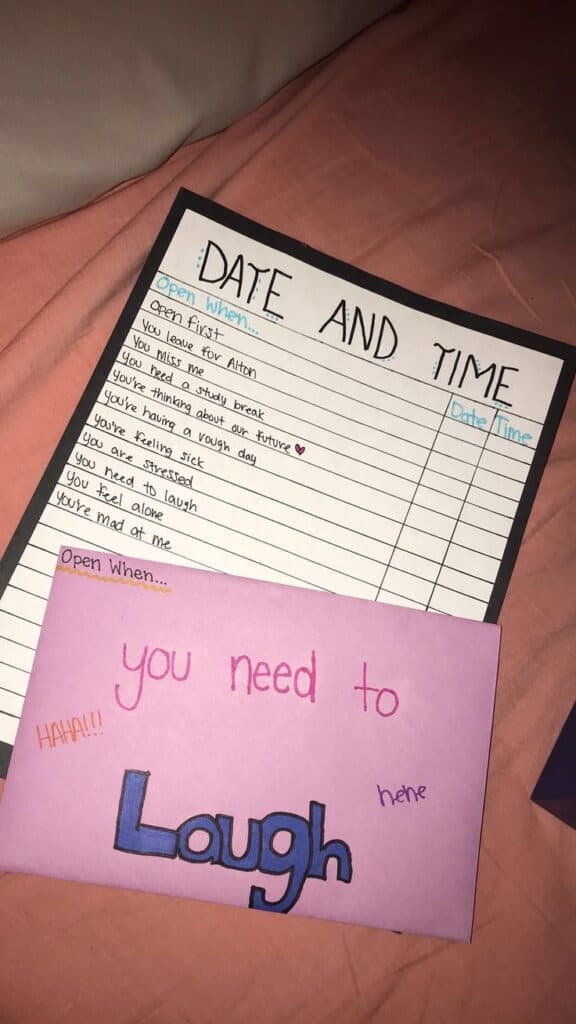 DATE AND TIME
Open When...
Date Time
Open first
You leave for Alton
You miss me
You need a study break
You're thinking about our future
You're having a rough day
You're feeling sick
You are stressed
You need to laugh
You feel alone
You're mad at me
Open When...
you need to
HAHA!!!
hehe
Laugh